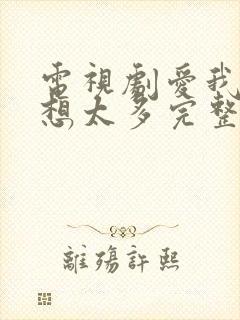 電視劇愛我
想太多完整
離殤許熙